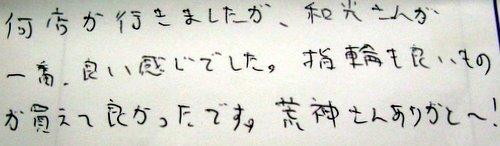 何店か行きましたが、和光さんが
一番、良い感じでした。指輪も良いもの
が買えて良かったです。荒神さんありがと～!